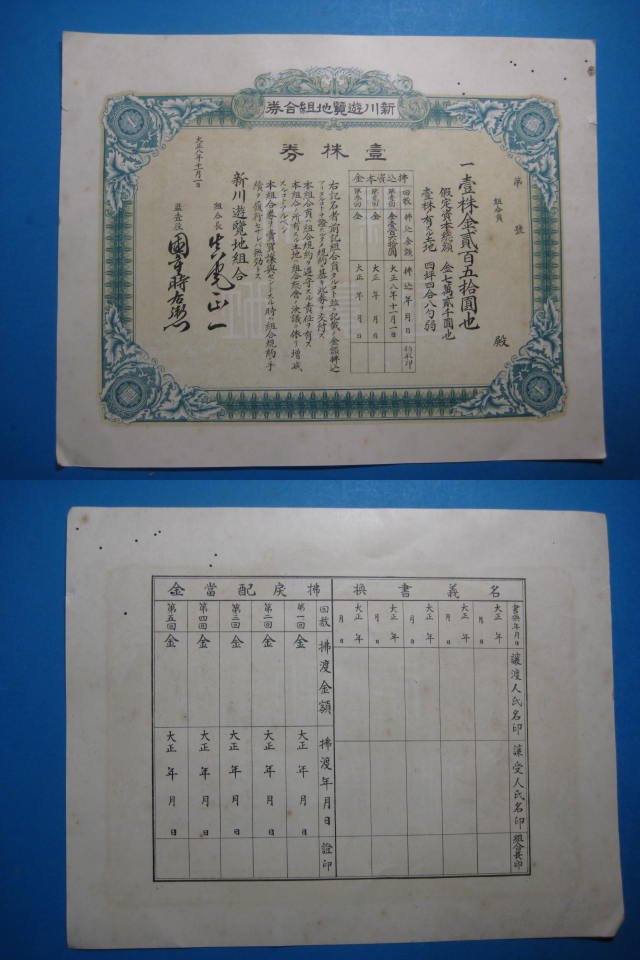 新川遊覽地組合券
壹株券
第 號
組合員 殿
一壹株金貳百五拾圓也
假定資本總額 金七萬貳千圓也
壹株有ル土地 四坪四合八勺弱
拂込資本金
回數 拂込金額 拂込年月日 領收印
第壹回 金壹百拾圓 大正八年十一月一日
第貳回 金 大正 年 月 日
第參回 金 大正 年 月 日
右記名者前記組合員タルコト
本組合員ハ組合規約ヲ遵守スル責任ヲ有ス
本組合ノ所有スル土地ハ組合總會ノ決議ニ依リ増減
スルコトアルベシ
本組合券ヲ賣買讓與セントスル時ハ組合規約ノ手
續ヲ履行セザレバ無効トス
新川遊覽地組合
組合長
監査役
大正八年十一月一日
名義書換
書換年月日 讓渡人氏名印 讓受人氏名印 組合長印
大正 年 月 日
大正 年 月 日
大正 年 月 日
大正 年 月 日
大正 年 月 日
拂戻配當金
回數 拂渡金額 拂渡年月日 證印
第一回 金 大正 年 月 日
第二回 金 大正 年 月 日
第三回 金 大正 年 月 日
第四回 金 大正 年 月 日
第五回 金 大正 年 月 日